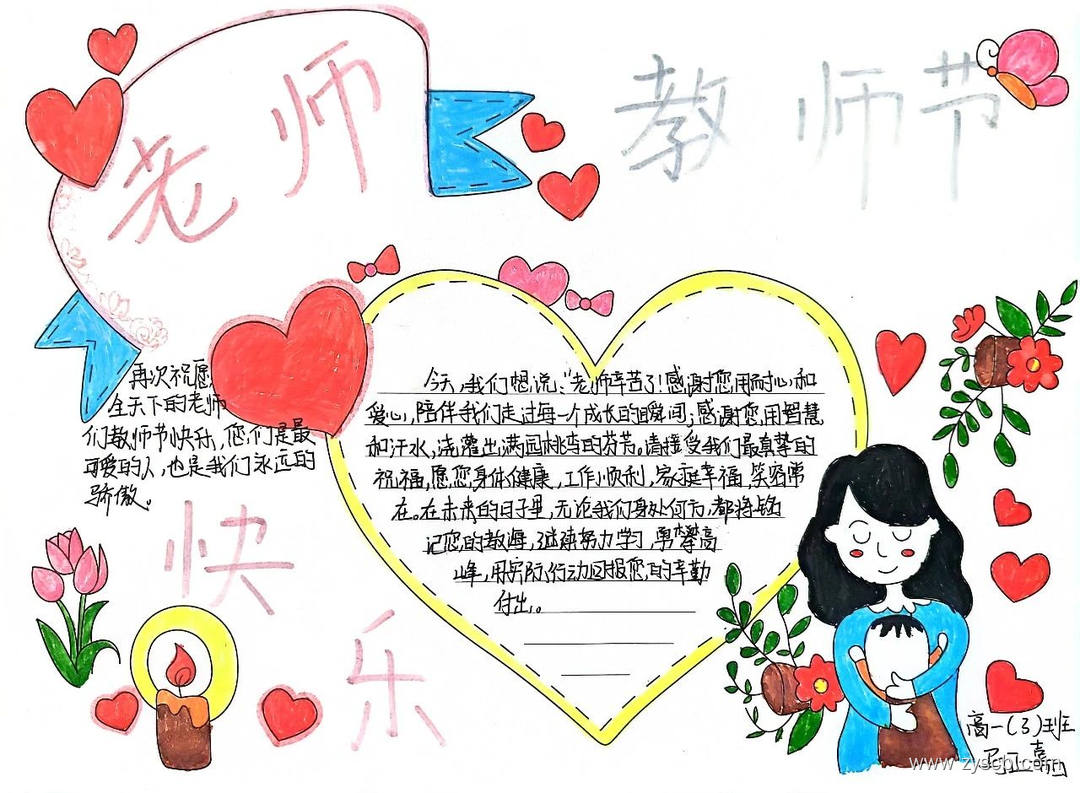 老师
教师节
快乐
再次祝愿
全天下的老师
们教师节快乐,您们是最
可爱的人,也是我们永远的
骄傲。
今天,我们想说:“老师辛苦了!感谢您用耐心和
爱心,陪伴我们走过每一个成长的瞬间;感谢您用智慧
和汗水,浇灌出满园桃李的芬芳。请接受我们最真挚的
祝福,愿您身体健康,工作顺利,家庭幸福,笑容常
在。在未来的日子里,无论我们身处何方,都将铭
记您的教诲,继续努力学习,勇攀高
峰,用实际行动回报您的辛勤
付出。
高一(3)班